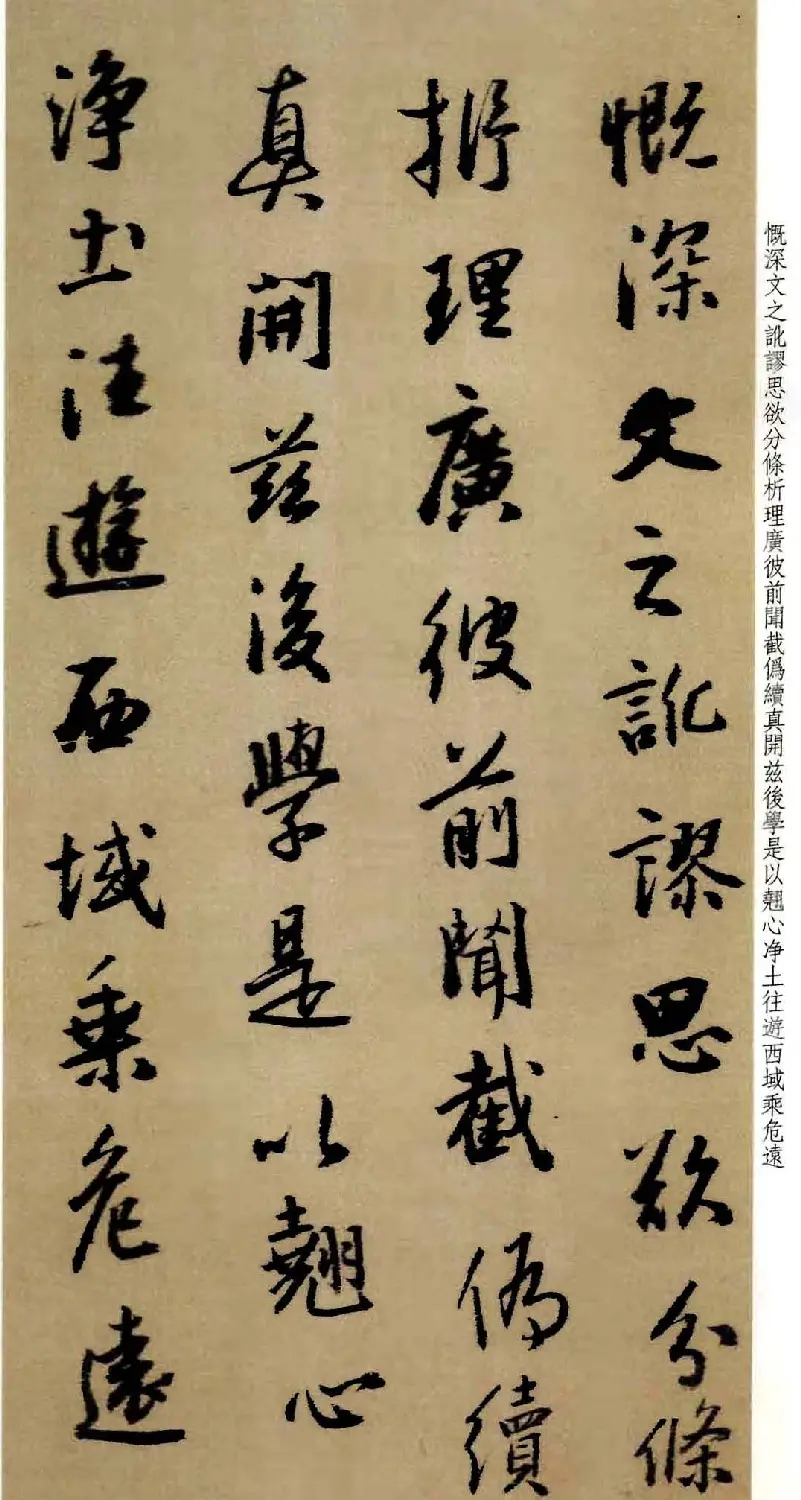 慨深文之訛謬思欲分條
析理廣彼前聞截偽續
真開兹後學是以翹心
淨土往遊西域乘危遠
慨深文之訛謬思欲分條析理廣彼前聞截僞續真開兹後學是以翹心净土往遊西域乘危遠